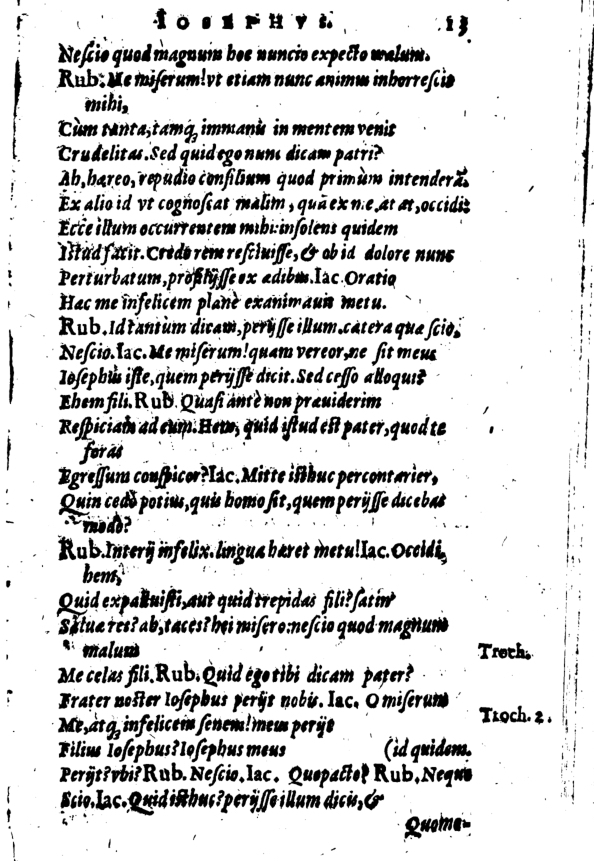 IOSEPHVS. 13
Nescio quod magnum hoc nuncio expecto malum.
Rub. Me miserum! vt etiam nunc animus inhorrescit
mihi,
Cùm tanta, tamq; immanis in mentem venit
Crudelitas. Sed quid ego nunc dicam patri?
Ah, hæreo, repudio consilium quod primùm intenderā.
Ex alio id vt cognoscat malim, quā ex me. at at, occidi:
Ecce illum occurrentem mihi: insolens quidem
Istud facit. Credo rem resciuisse, & ob id dolore nunc
Perturbatum, prosilijsse ex ædibus. Iac. Oratio
Hæc me infelicem planè exanimauit metu.
Rub. Id tantùm dicam, perijsse illum. cætera quæ scio,
Nescio. Iac. Me miserum! quam vereor, ne sit meus
Iosephus iste, quem perijsse dicit. Sed cesso alloqui?
Ehem fili. Rub. Quasi antè non præuiderim
Respiciam ad eum. Hem, quid istud est pater, quod te
foras
Egressum conspicor? Iac. Mitte isthuc percontarier,
Quin cedò potius, quis homo sit, quem perijsse dicebas
modò?
Rub. Interij infelix. lingua hæret metu! Iac. Occidi,
hem,
Quid expalluisti, aut quid trepidas fili? satin'
Saluæ res? ah, taces? hei misero: nescio quod magnum
malum Troch.
Me celas fili. Rub. Quid ego tibi dicam pater?
Frater noster Iosephus perijt nobis. Iac. O miserum
Me, atq; infelicem senem! meus perijt Troch. 2.
Filius Iosephus? Iosephus meus (id quidem.
Perijt? vbi? Rub. Nescio. Iac. Quo pacto? Rub. Neque
Scio. Iac. Quid isthuc? perijsse illum dicis, &
Quome-